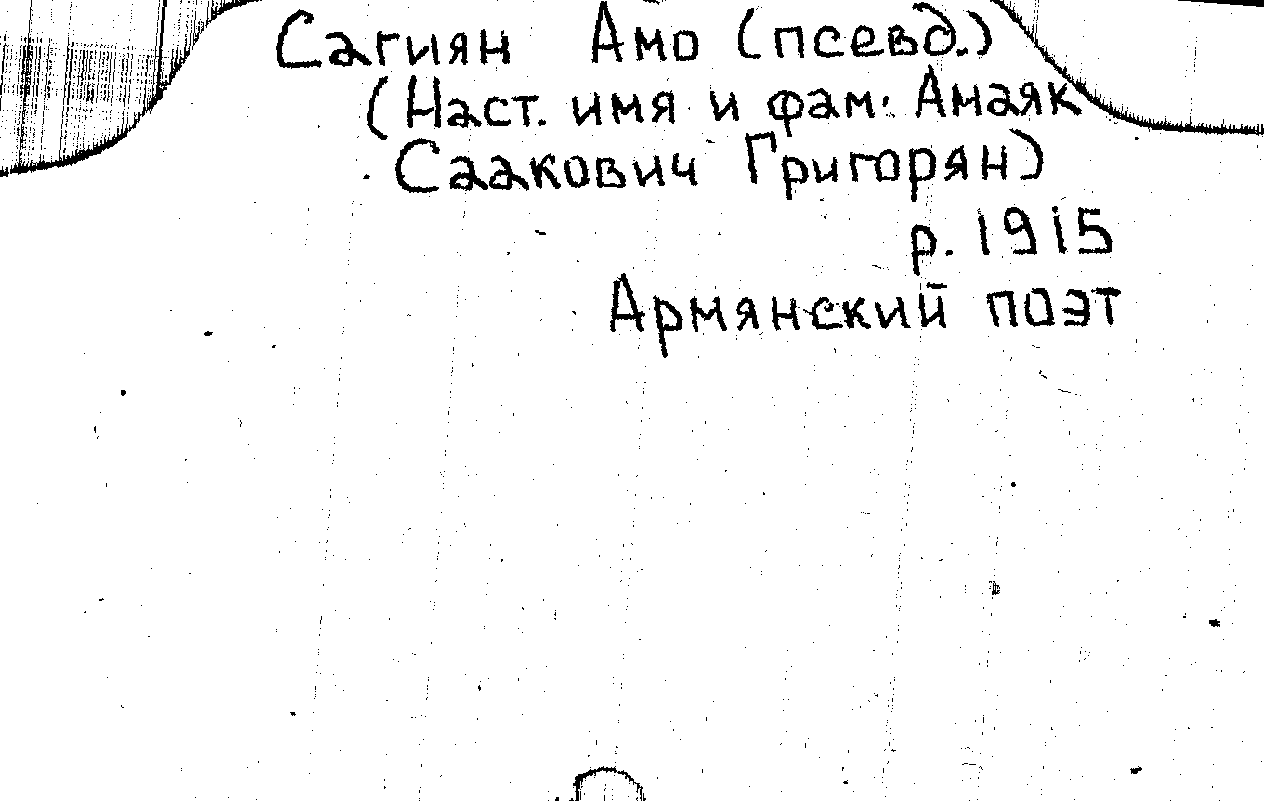 Сагиян Амо (псевд.)
(Наст. имя и фам. Амаяк
Саакович Григорян)
р. 1915
Армянский поэт